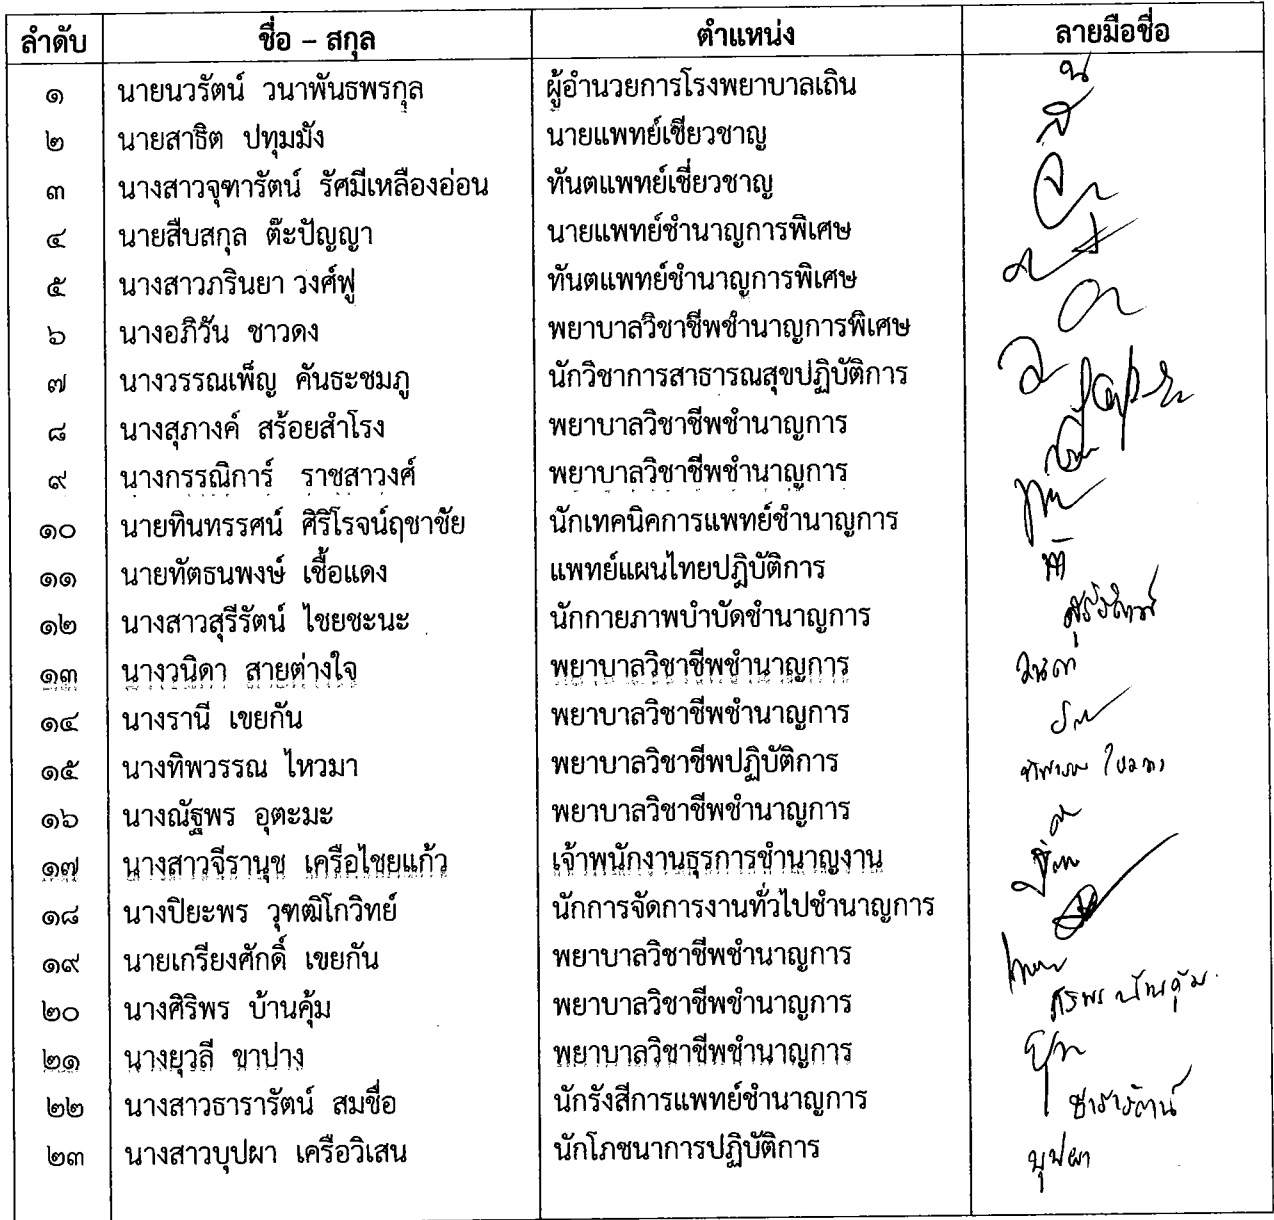 ลำดับ ชื่อ – สกุล ตำแหน่ง ลายมือชื่อ
๑ นายนวรัตน์ วนาพันธพรกุล ผู้อำนวยการโรงพยาบาลเถิน
๒ นายสาธิต ปทุมมัง นายแพทย์เชียวชาญ
๓ นางสาวจุฑารัตน์ รัศมีเหลืองอ่อน ทันตแพทย์เชี่ยวชาญ
๔ นายสืบสกุล ต๊ะปัญญา นายแพทย์ชำนาญการพิเศษ
๕ นางสาวภรินยา วงศ์ฟู ทันตแพทย์ชำนาญการพิเศษ
๖ นางอภิวัน ชาวดง พยาบาลวิชาชีพชำนาญการพิเศษ
๗ นางวรรณเพ็ญ คันธะชมภู นักวิชาการสาธารณสุขปฏิบัติการ
๘ นางสุภางค์ สร้อยสำโรง พยาบาลวิชาชีพชำนาญการ
๙ นางกรรณิการ์ ราชสาวงศ์ พยาบาลวิชาชีพชำนาญการ
๑๐ นายทินทรรศน์ ศิริโรจน์ฤชาชัย นักเทคนิคการแพทย์ชำนาญการ
๑๑ นายทัตธนพงษ์ เชื้อแดง แพทย์แผนไทยปฏิบัติการ
๑๒ นางสาวสุรีรัตน์ ไชยชะนะ นักกายภาพบำบัดชำนาญการ สุรีรัตน์
๑๓ นางวนิดา สายต่างใจ พยาบาลวิชาชีพชำนาญการ
๑๔ นางรานี เขยกัน พยาบาลวิชาชีพชำนาญการ
๑๕ นางทิพวรรณ ไหวมา พยาบาลวิชาชีพปฏิบัติการ ทิพวรรณ ไหวมา
๑๖ นางณัฐพร อุตะมะ พยาบาลวิชาชีพชำนาญการ
๑๗ นางสาวจีรานุช เครือไชยแก้ว เจ้าพนักงานธุรการชำนาญงาน
๑๘ นางปิยะพร วุฑฒิโกวิทย์ นักการจัดการงานทั่วไปชำนาญการ
๑๙ นายเกรียงศักดิ์ เขยกัน พยาบาลวิชาชีพชำนาญการ
๒๐ นางศิริพร บ้านคุ้ม พยาบาลวิชาชีพชำนาญการ ศิริพร บ้านคุ้ม
๒๑ นางยุวลี ขาปาง พยาบาลวิชาชีพชำนาญการ
๒๒ นางสาวธารารัตน์ สมชื่อ นักรังสีการแพทย์ชำนาญการ ธารารัตน์
๒๓ นางสาวบุปผา เครือวิเสน นักโภชนาการปฏิบัติการ บุปผา